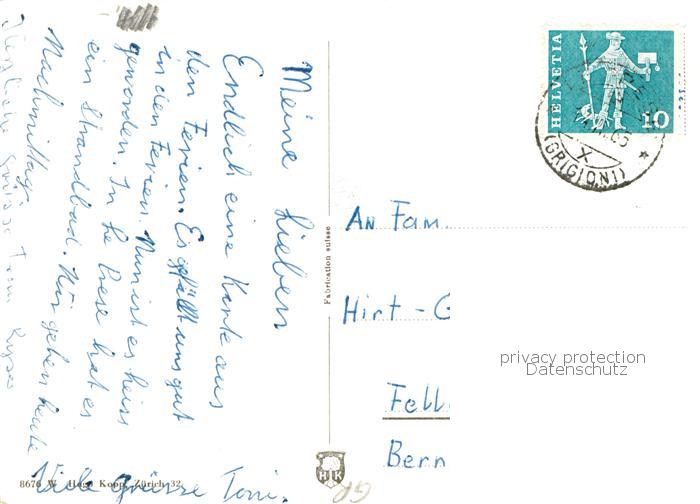 Meine Lieben
Endlich eine Karte aus
den Ferien. Es gefällt uns gut
in den Ferien. Nun ist es heiss
geworden. In Le Prese hat es
ein Strandbad. Wir gehen heute
Nachmittag.
Viele Grüsse Toni.
Herzliche Grüsse
AN Fam.
Hirt - G
Fell
Bern
HELVETIA
10
(GRIGIONI)
Fabrication suisse
8676 W Hugo Kopp, Zürich 32
HK
GR
privacy protection
Datenschutz